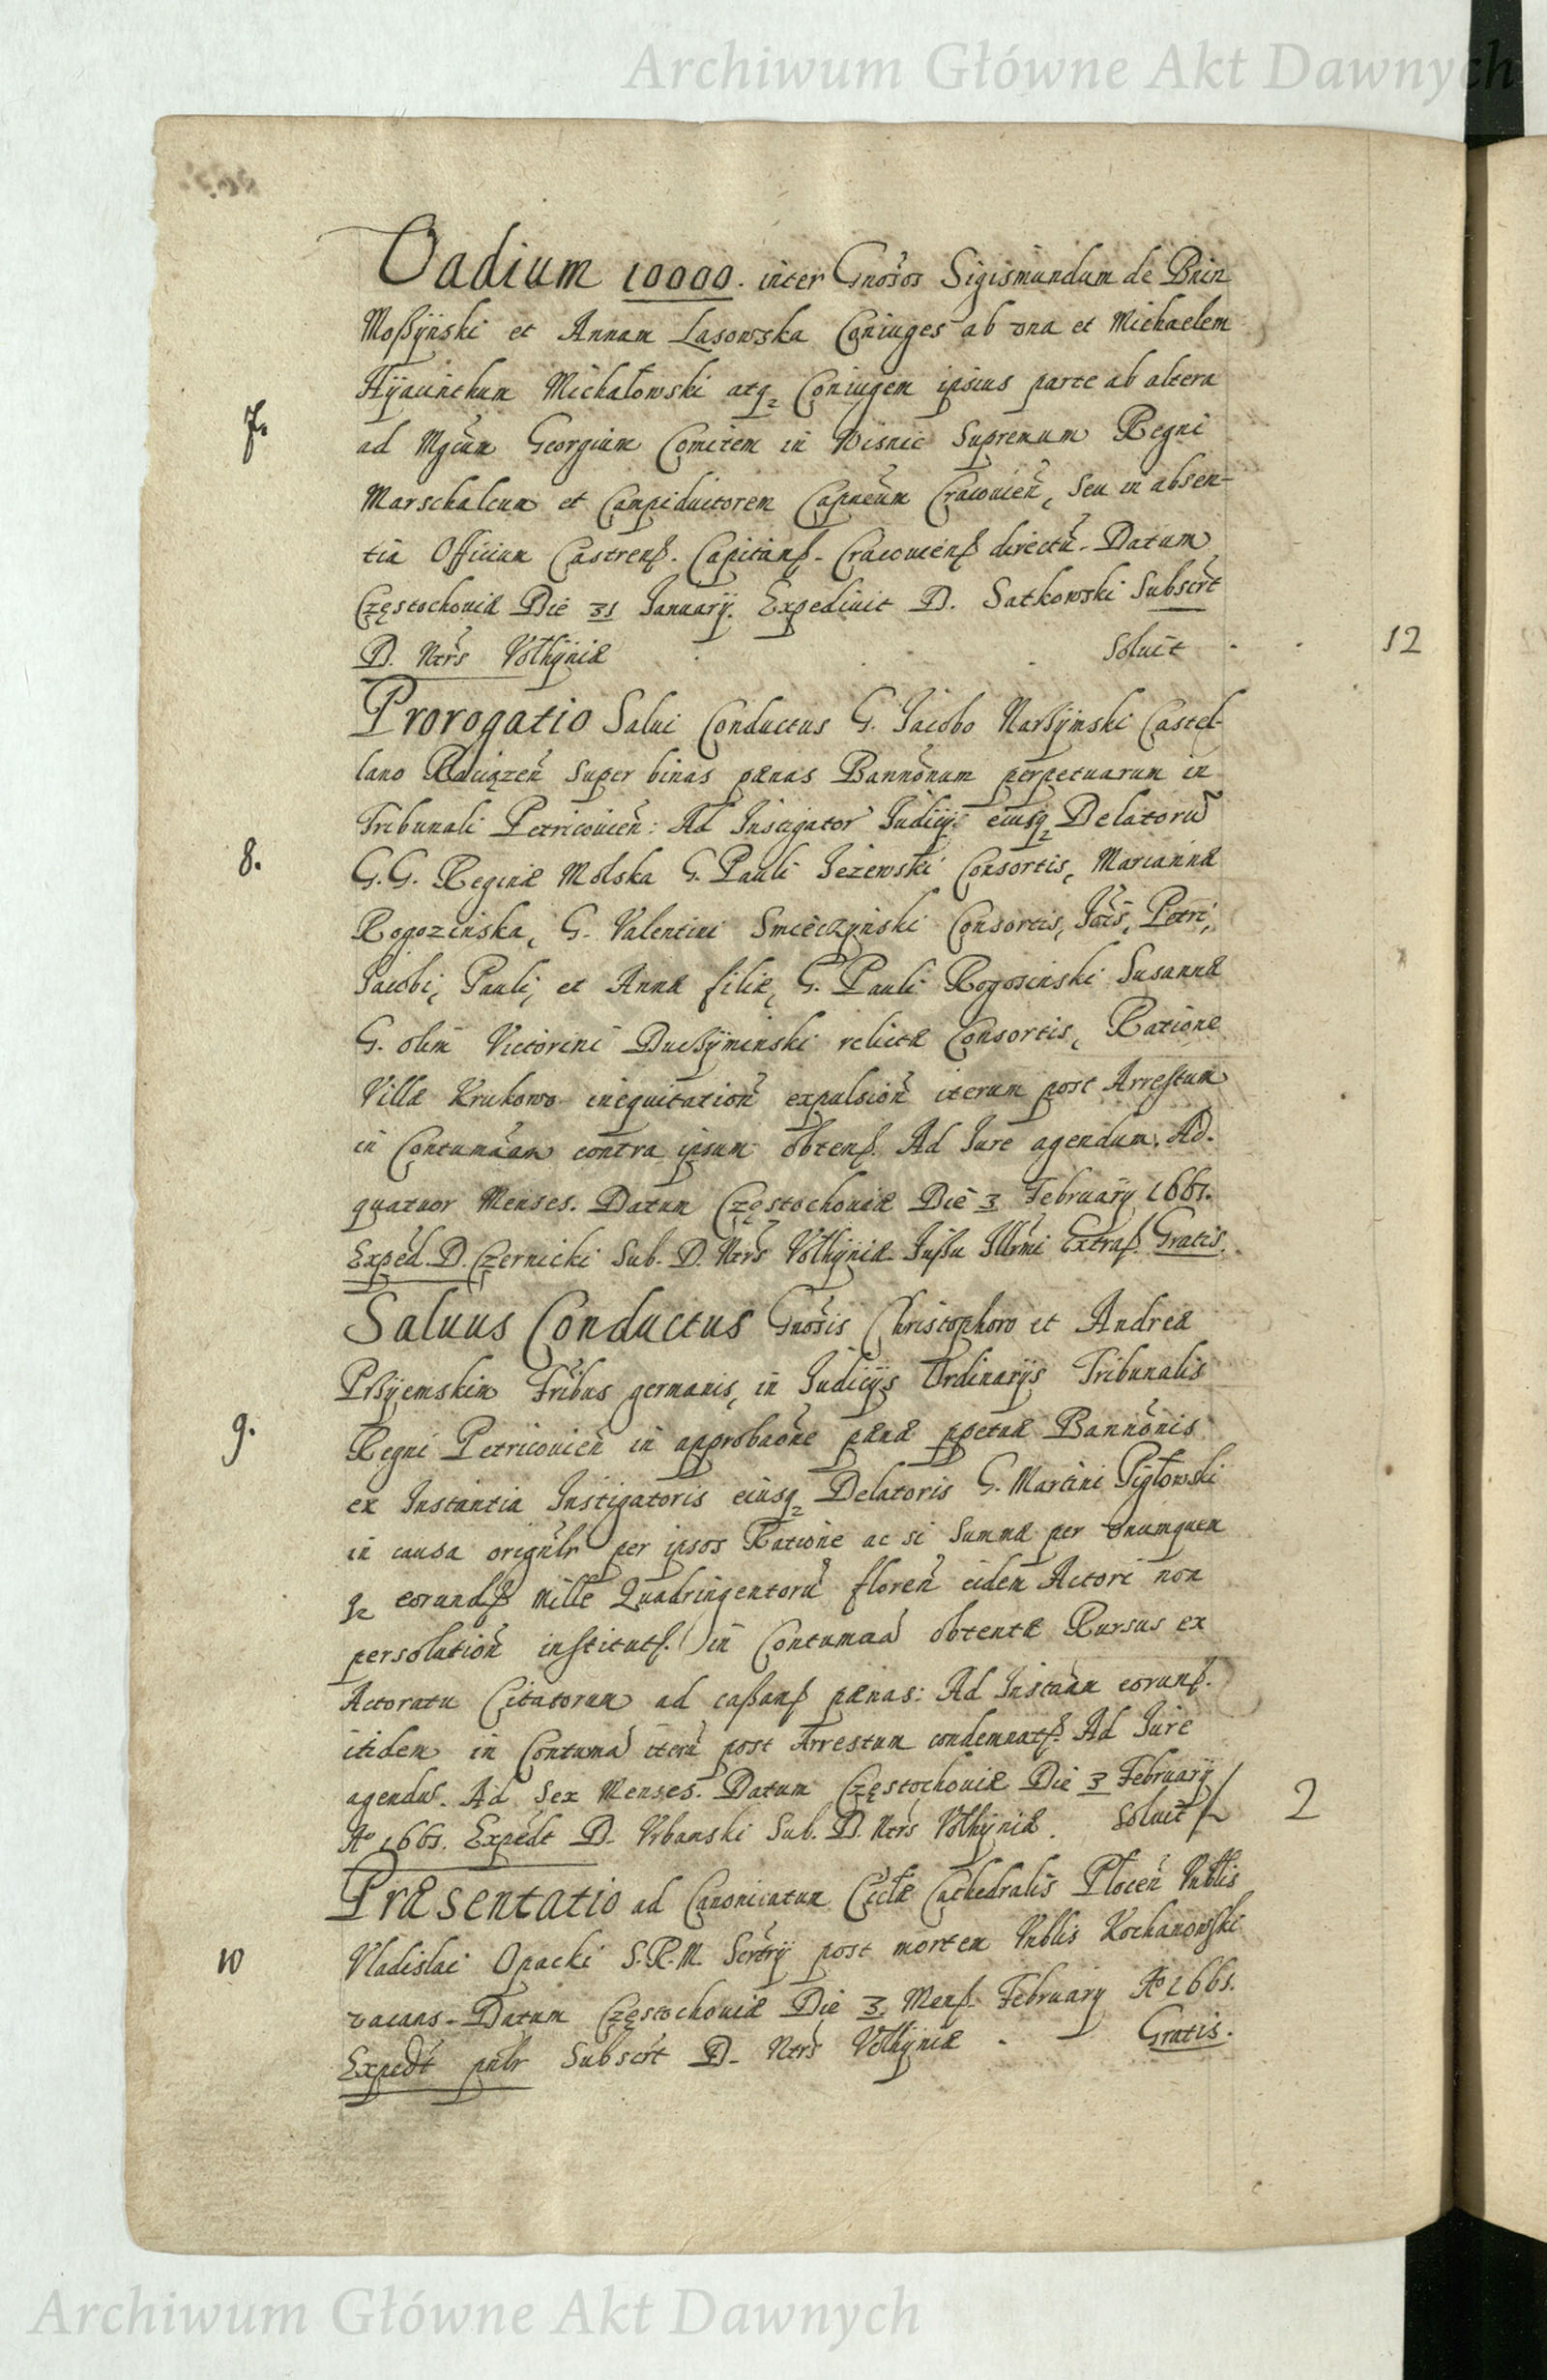 Archiwum Główne Akt Dawnych
Vadium 10000. inter Gnosos Sigismundum de Bnin
Moßÿnski et Annam Lasowska Coniuges ab vna et Michaelem
Hÿacinthum Michałowski atq₂ Coniugem ipsius parte ab altera
7. ad Mgcum Georgium Comitem in Wisnic Supremum Regni
Marschalcum et Campiductorem Capneum Cracouien̄, Seu in absen-
tia Officium Castrenß. Capitanß. Cracouienß directū. Datum
Częstochouiæ Die 31 Januarÿ. Expediuit D. Satkowski Subscrt
D. Ntrs Volhÿniæ . . . Soluit . . 12
Prorogatio Salui Conductus G. Jacobo Narßÿmski Castel-
lano Raciązen̄ Super binas pænas Bannonum perpetuarum in
Tribunali Petricouien̄: Ad Instigator Judicÿ eiusq₂ Delatorū
8. G.G. Reginæ Molska G. Pauli Jeżewski Consortis, Mariannæ
Rogozinska, G. Valentini Smieczÿnski Consortis, Jois, Petri,
Jacobi, Pauli, et Annæ filiæ, G. Pauli Rogosinski Susannæ
G. olim Victorini Dueßÿminski relictæ Consortis, Ratione
Villæ Krukowo inequitation̄ expulsion̄ iterum post Arrestum
in Contumaam contra ipsum obtenß. Ad Jure agendum. Ad.
quatuor Menses. Datum Częstochouiæ Die 3 Februarÿ 1661.
Exped. D. Czernicki Sub. D. Ntrs Volhÿniæ Jußu Illrmi Extraß. Gratis.
Saluus Conductus Gnosis Christophoro et Andreæ
Pßÿemskim Fribus germanis, in Judicÿs Ordinarÿs Tribunalis
9. Regni Petricouien̄ in approbaone pænæ ppetuæ Bannonis
ex Instantia Instigatoris eiusq₂ Delatoris G. Martini Pigłowski
in causa orignlr per ipsos Ratione ac si Summæ per vnumquem
q₂ eorundß Mille Quadringentorū floren̄ eidem Actori non
persolution̄ institutß. in Contumaa obtentæ Rursus ex
Actoratu Citatorum ad caßanß pænas: Ad Instaam eorunß.
itidem in Contuma iterū post Arrestum condemnatß. Ad Jure
agendus. Ad Sex Menses. Datum Częstochouiæ Die 3 Februarÿ
Aº 1661. Expedt D. Vrbanski Sub. D. Ntrs Volhÿniæ. Soluit 2
Præsentatio ad Canonicatum Ecclæ Cathedralis Płocen̄ Vnblis
10 Vladislai Opacki S.R.M. Scrtrÿ post mortem Vnblis Kochanowski
vacans. Datum Częstochouiæ Die 3. Menß. Februarÿ Aº 1661.
Expedt pnlr Subscrt D. Ntrs Volhÿniæ . – Gratis.
Archiwum Główne Akt Dawnych